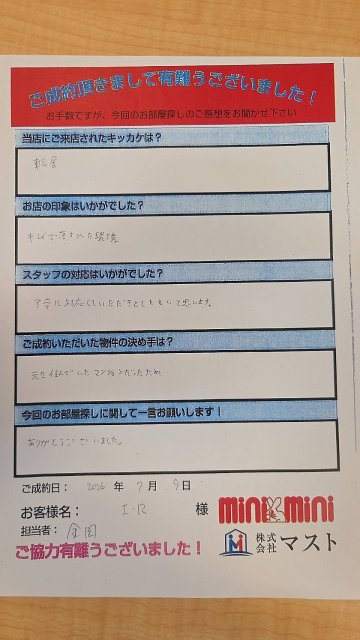 ご成約頂きまして有難うございました！
お手数ですが、今回のお部屋探しのご感想をお聞かせ下さい
当店にご来店されたキッカケは？
転居
お店の印象はいかがでした？
キレイで落ちついた環境
スタッフの対応はいかがでした？
・丁寧に対応していただきとてもよいと思います
ご成約いただいた物件の決め手は？
元々住んでいたマンションだったため
今回のお部屋探しに関して一言お願いします！
ありがとうございました。
ご成約日： 2026 年 7 月 9 日
お客様名： I・R 様
minimini
担当者： 金田
株式会社 マスト
ご協力有難うございました！